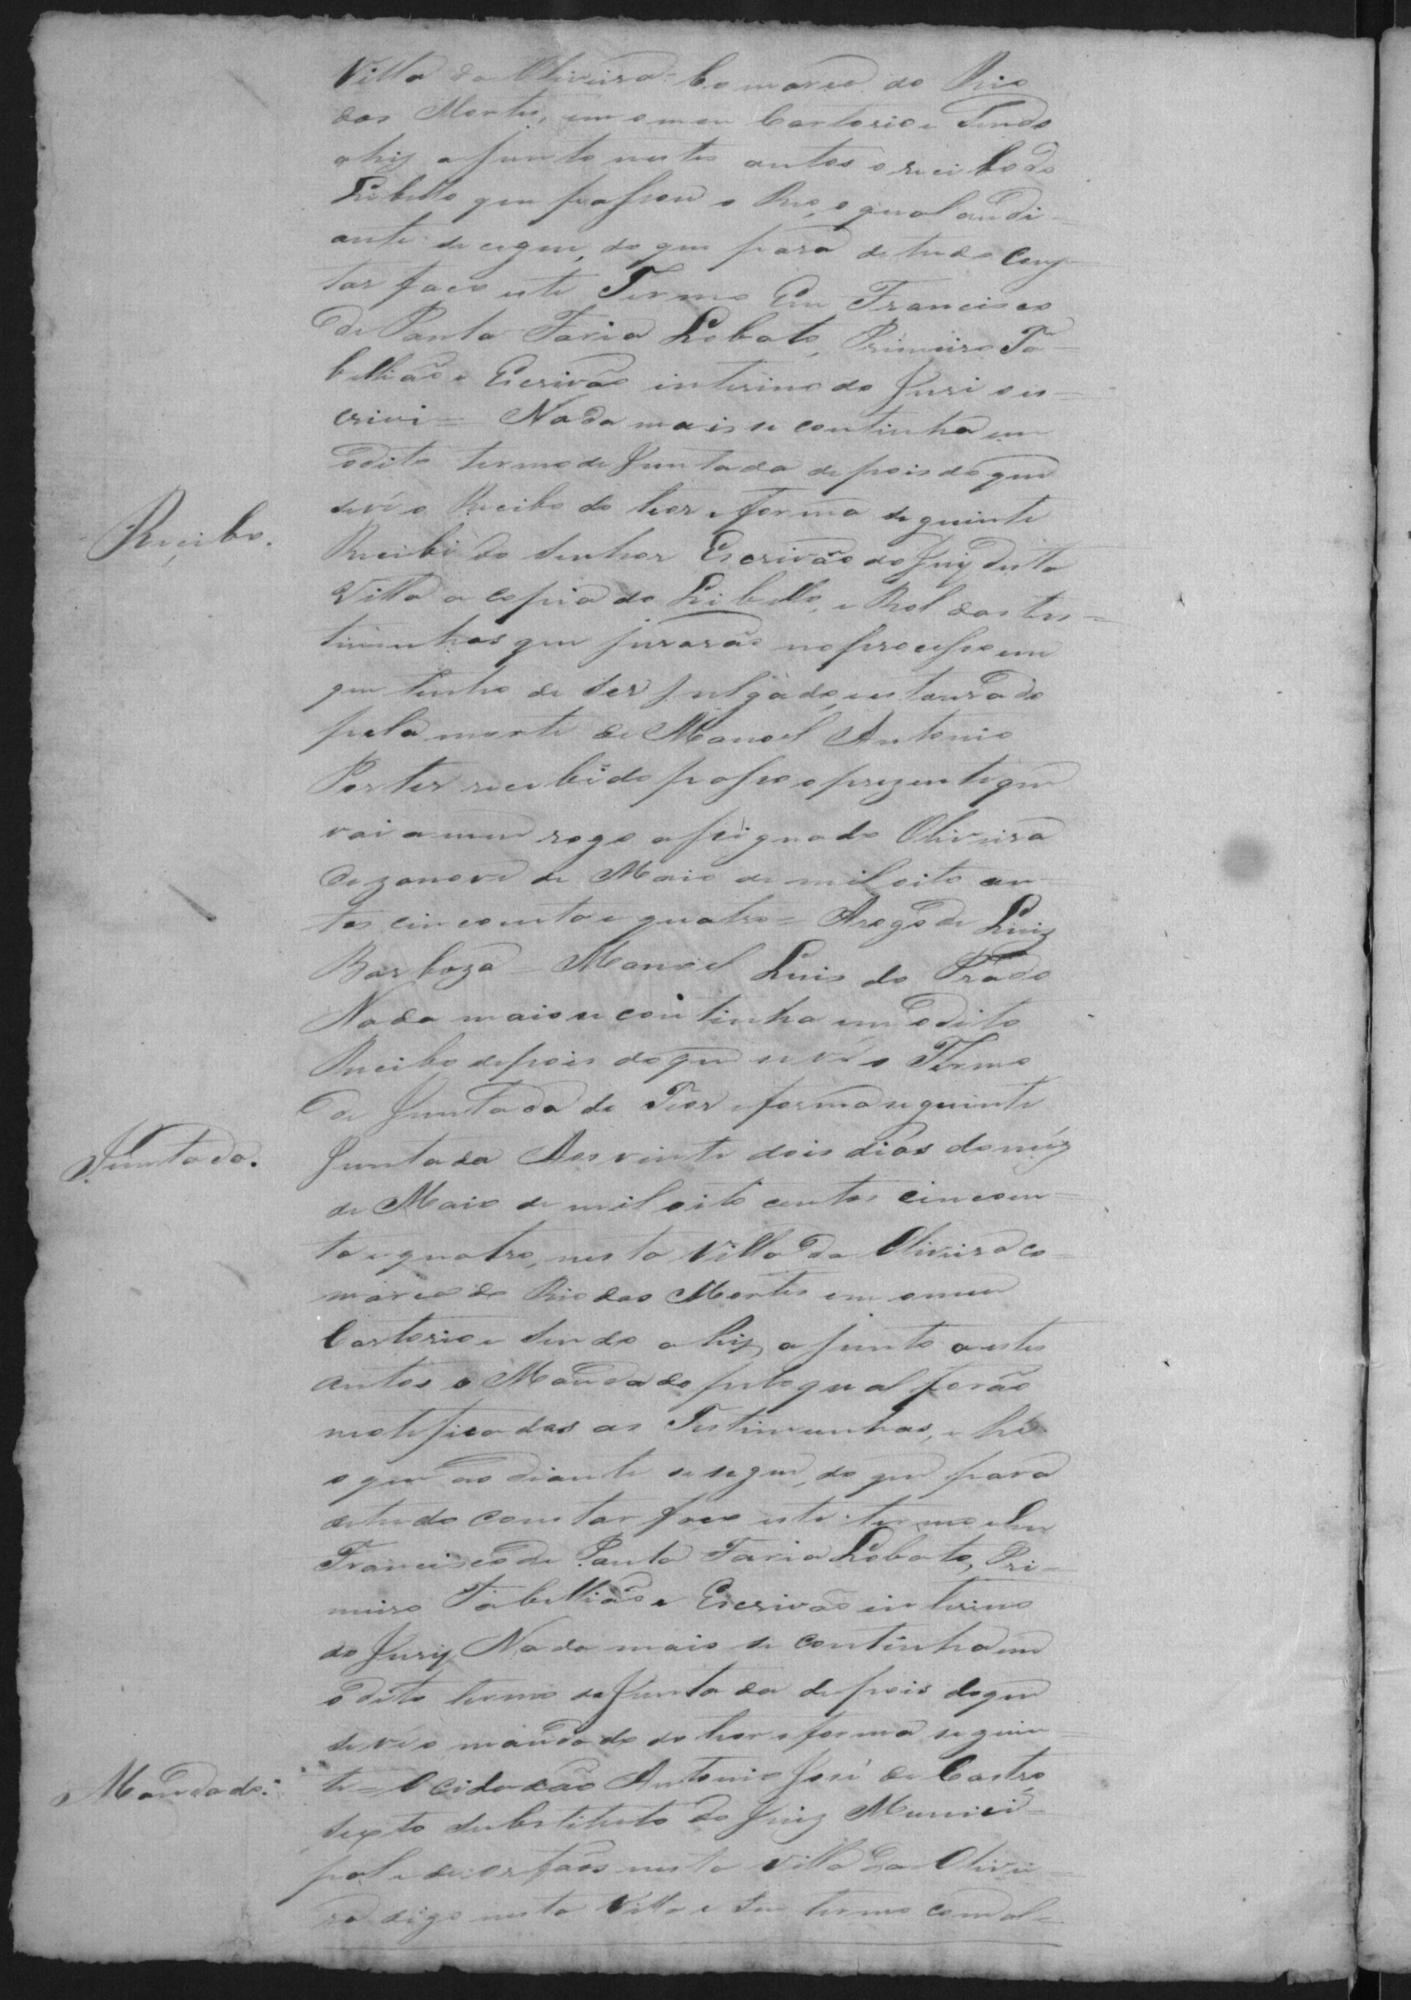 Villa da Oliveira Comarca do Rio
das Mortes, em o meu Cartorio e sendo
ahi ajunto nestes autos o recibo do
Libello que passou o Reo, o qual aodi-
ante se segue, do que para de tudo cons-
tar faço este Termo Eu Francisco
de Paula Faria Lobato, Primeiro Ta-
bellião e Escrivão interino do Juri o es-
crivi = Nada mais se continha em
odito termo de Juntada depois do que
se vê o Recibo do theor e forma seguinte
Recibo.
Recibi do Senhor Escrivão do Jury desta
Villa a copia do Libello, e Rol das tes-
timunhas que jurarão no processo em
que tenho de ser julgado, instaurado
pela morte de Manoel Antonio
Porter recibido passo o prezente que
vai a meu rogo assignado Oliveira
dezanove de Maio de mil oito cen-
tos cincoenta e quatro = Arogo de Luiz
Barboza = Manoel Luis do Prado
Nada mais se continha em odito
Recibo depois do que se vê o Termo
de Juntada do Teor e forma seguinte
Juntada.
Juntada Aos vinte dois dias do mêz
de Maio de mil oito centos cincoen-
ta e quatro, nesta Villa da Oliveira co-
marca do Rio das Mortes em o meu
Cartorio e sendo ahi ajunto a estes
autos o Mandado pelo qual forão
notificadas as Testimunhas, e hé
o que ao diante se segue, do que para
de tudo constar faço este termo eu
Francisco de Paula Faria Lobato, Pri-
meiro Tabellião e Escrivão interino
do Jury Nada mais se continha em
odito termo de Juntada depois do que
se vê o mandado do theor e forma seguin-
Mandado.
te = O cidadão Antonio José de Castro
sexto Substituto do Juiz Munici-
pal e de orfãos nesta Villa da Olivei-
ra digo nesta Villa e seu termo com al-